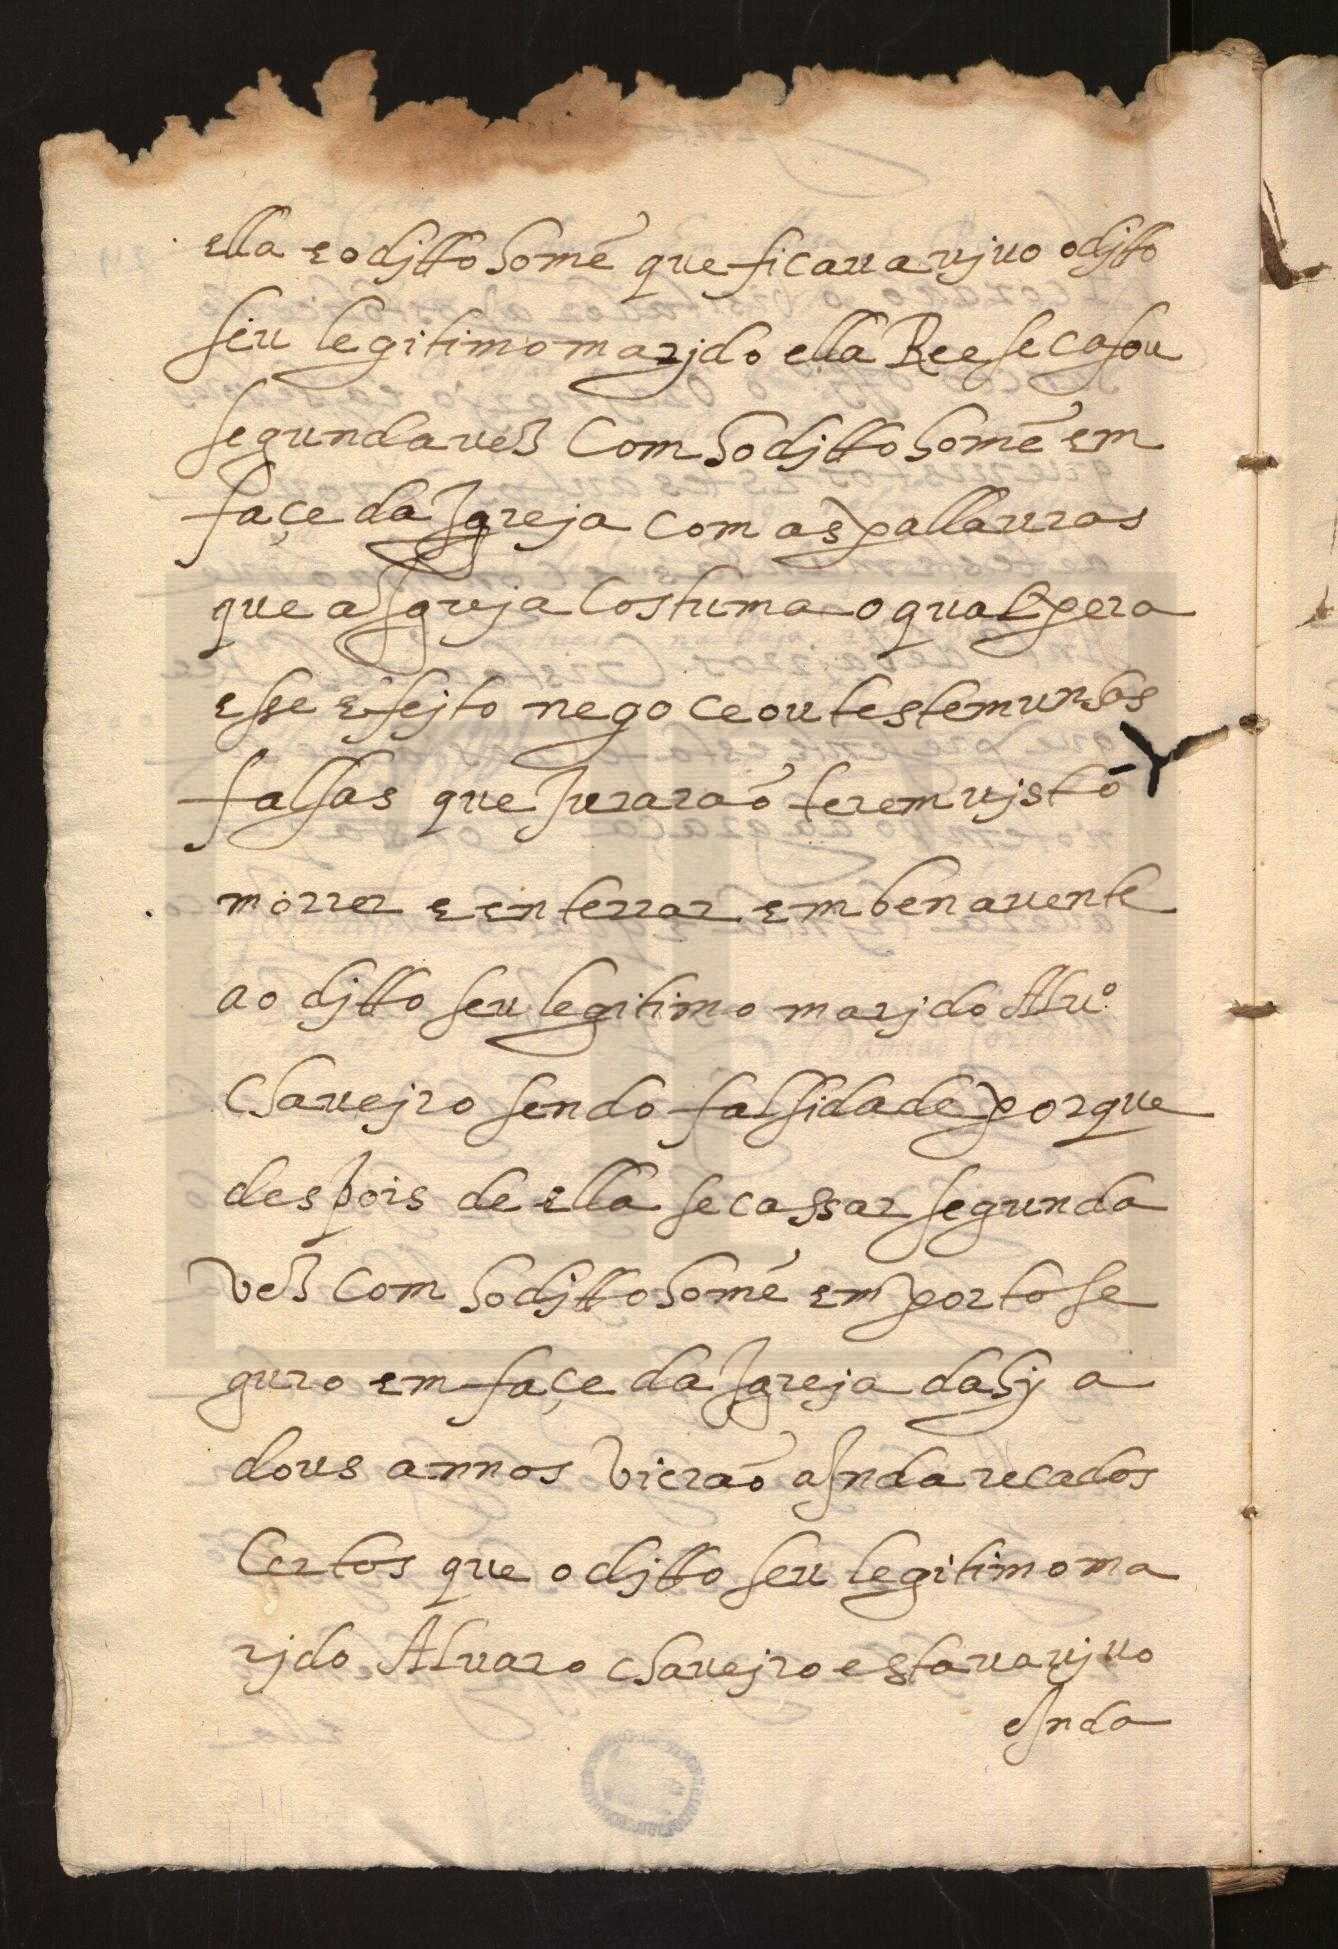 ella e o djtto home que ficava vjuo o djtto
seu legitimo marjdo ella Ree se casou
segunda ves com ho djtto home em
façe da Igreja com as pallauras
que a Igreja costuma o qual pera
esse efejto negoceou testemunhas
falsas que Iurarão terem vjsto
morrer e enterrar em benauente
ao djtto seu legitimo marjdo Aluº
chauejro sendo falsidade porque
despois de ella se cassar segunda
ves com ho djtto home em porto se
guro em façe da Igreja dahj a
dous annos vierão aInda recados
certos que o djtto seu legitimo ma
rjdo Alvaro chauejro estaua vjuo
eInda